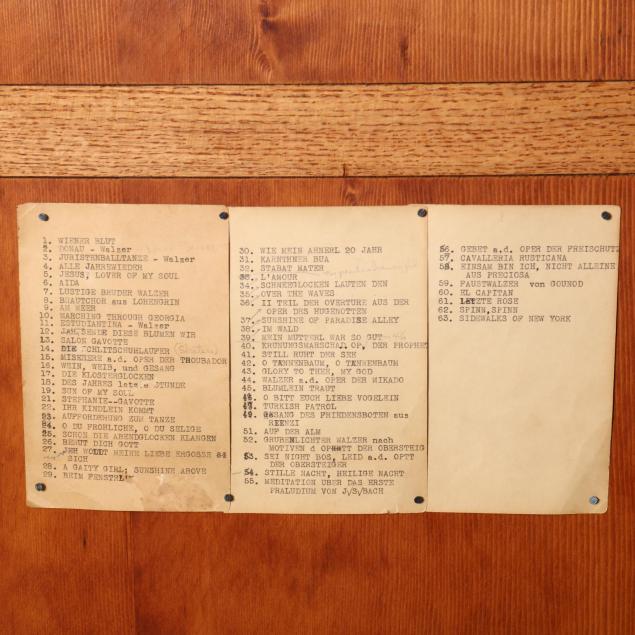 1. WIENER BLUT
2. DONAU - Walzer
3. JURISTENBALLTANZE - Walzer
4. ALLE JAHREWIEDER
5. JESUS; LOVER OF MY SOUL
6. AIDA
7. LUSTIGE BRUDER WALZER
8. BRAUTCHOR aus LOHENGRIN
9. AM MEER
10. MARCHING THROUGH GEORGIA
11. ESTUDIANTINA - Walzer
12. DIESE BLUMEN WIR
13. SALON GAVOTTE
14. DIE SCHLITSCHUHLAUFER (Skaters)
15. MISERERE a.d. OPER DER TROUBADOR
16. WEIN, WEIB, und GESANG
17. DIE KLOSTERGLOCKEN
18. DES JAHRES STUNDE
19. SUN OF MY SOLL
21. STEPHANIE--GAVOTTE
22. IHR KINDLEIN KOMMT
23. AUFFORDERUNG ZUM TANZE
24. O DU FROHLICHE, O DU SELIGE
25. SCHON DIE ABENDGLOCKEN KLANGEN
26. BEHUT DICH GOTT
27. MEINE LIEBE ERGOSSE
SICH
28. A GAITY GIRL, SUNSHINE ABOVE
29. BEIM
30. WIE MEIN AHNERL 20 JAHR
31. KARNTHNER BUA
32. STABAT MATER
33. L'AMOUR
34. SCHNEEGLOCKEN LAUTEN DEN
35. OVER THE WAVES
36. II TEIL DER OVERTURE AUS DER
OPER DES HUGENOTTEN
37. SUNSHINE OF PARADISE ALLEY
38. IM WALD
39. MEIN MUTTERL WAR SO GUT
40. KRONUNGSMARSCH AD. OP. DER PROPHET
41. STILL RUHT DER SEE
42. O TANNENBAUM, O TANNENBAUM
43. GLORY TO THEE, MY GOD
44. WALZER a.d. OPER DER MIKADO
45. BLUMLEIN TRAUT
46. O BITT EUCH LIEBE VOGELEIN
47. TURKISH PATROL
49. GESANG DES FRIEDENSBOTEN aus
RIENZI
51. AUF DER ALM
52. GRUBENLICHTER WALZER nach
MOTIVEN d OPTT DER OBERSTEIG
53. SEI NIGHT BOS, LEID a.d. OPTT
DER OBERSTEIGER
54. STILLE NACHT, HEILIGE NACHT
55. MEDITATION UBER DAS ERSTE
PRALUDIUM VON J/S/BACH
56. GEBET a.d. OPER DER FREISCHUTZ
57. CAVALLERIA RUSTICANA
58. EINSAM BIN ICH, NICHT ALLEINE
AUS PRECIOSA
59. FAUSTWALZER von GOUNOD
60. EL CAPITAN
61. LETZTE ROSE
62. SPINN, SPINN
63. SIDEWALKS OF NEW YORK